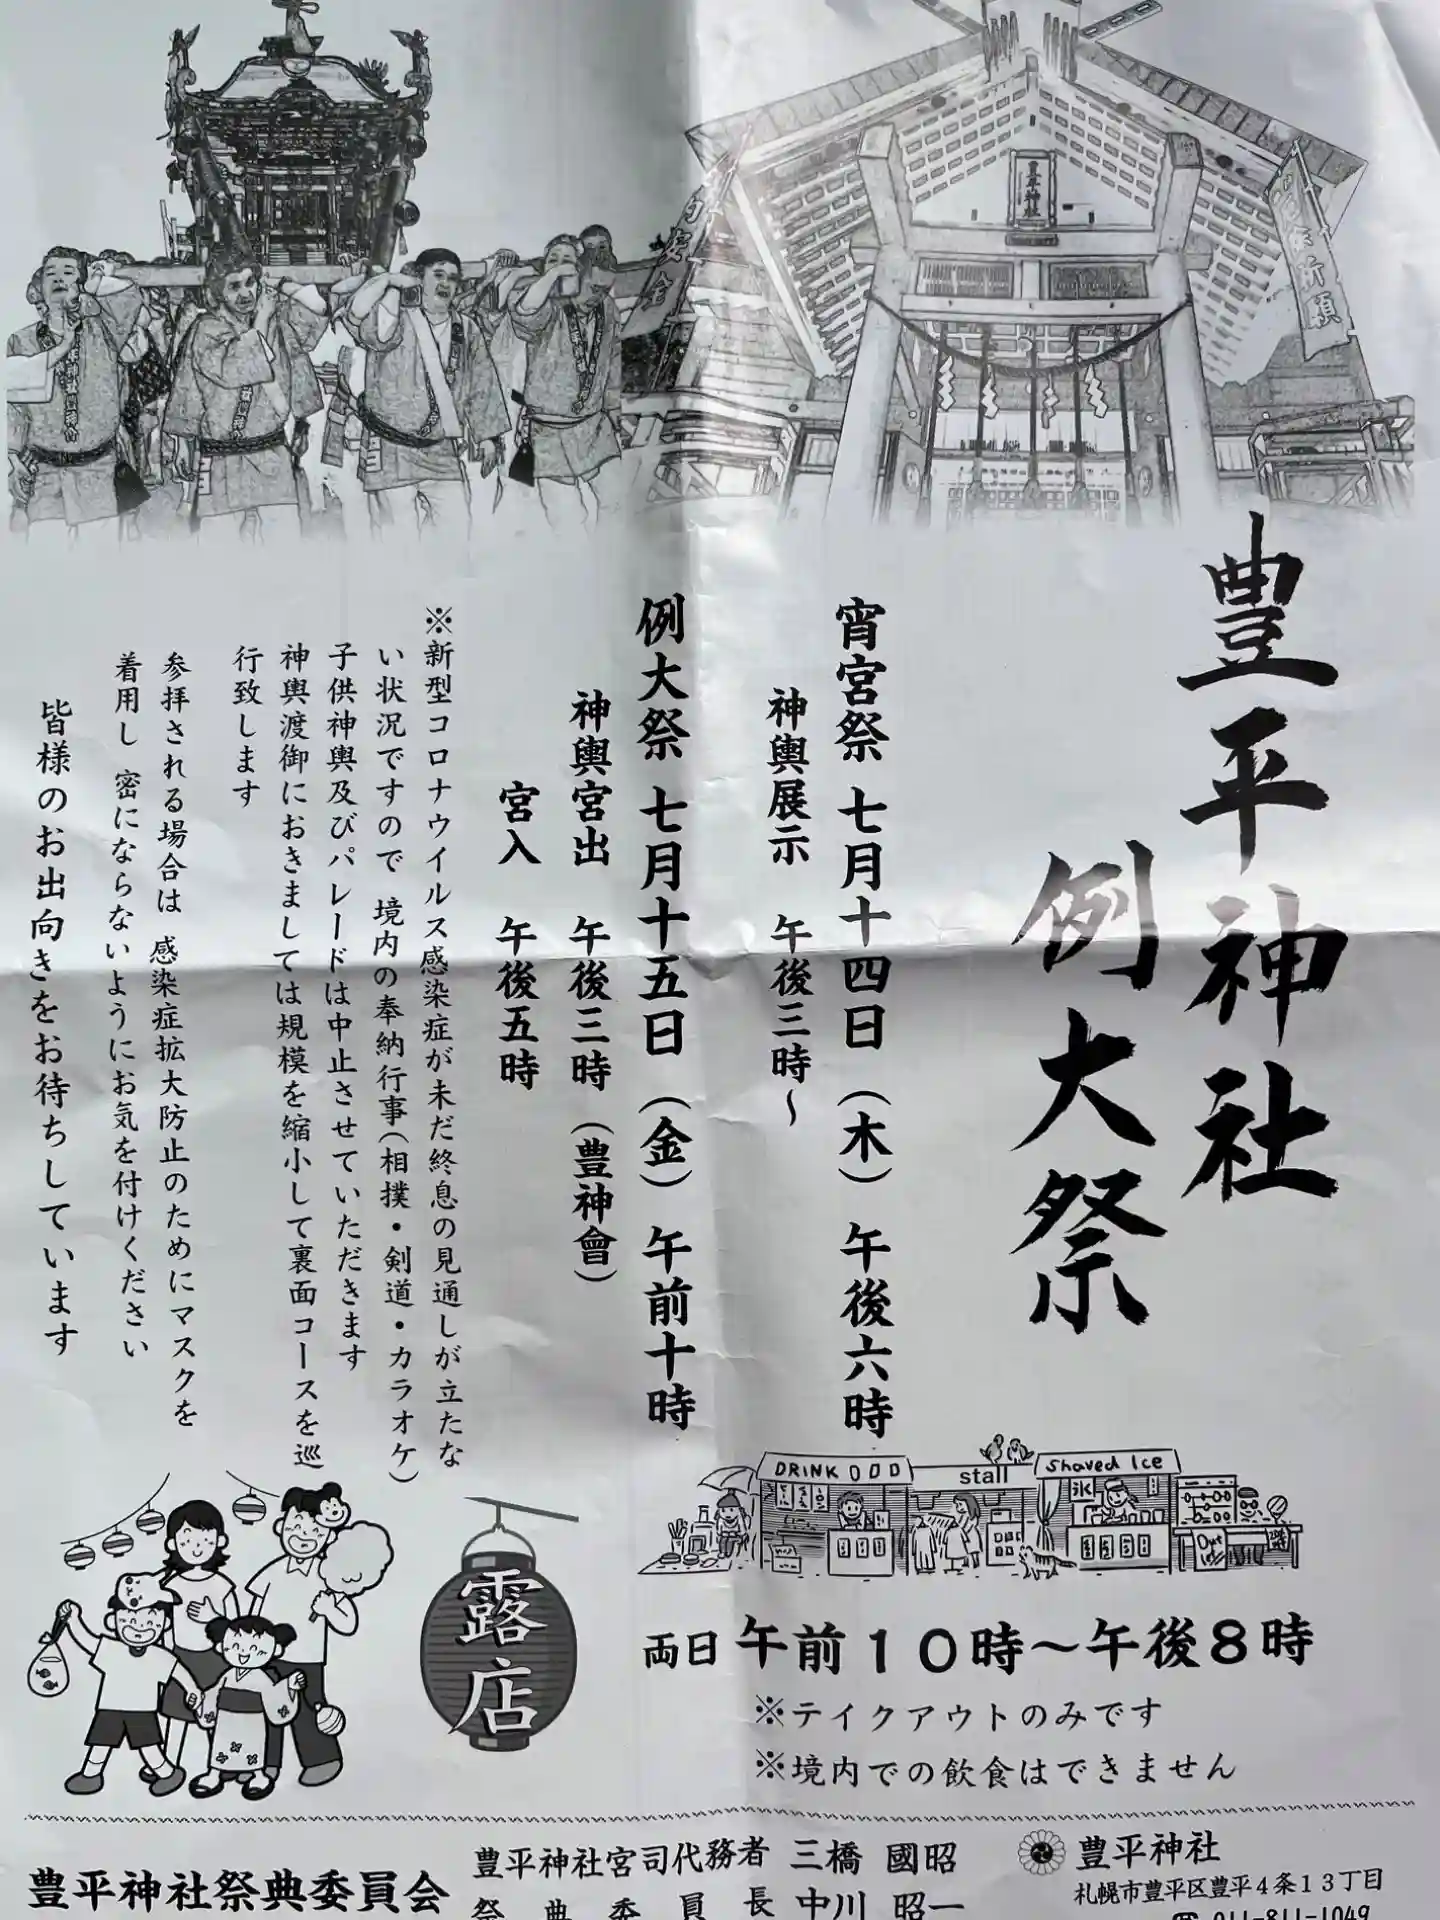 豊平神社
例大祭
宵宮祭 七月十四日(木) 午後六時
神輿展示 午後三時〜
例大祭 七月十五日(金) 午前十時
神輿宮出 午後三時(豊神會)
宮入 午後五時
※新型コロナウイルス感染症が未だ終息の見通しが立たな
い状況ですので 境内の奉納行事(相撲・剣道・カラオケ)
子供神輿及びパレードは中止させていただきます
神輿渡御におきましては規模を縮小して裏面コースを巡
行致します
参拝される場合は 感染症拡大防止のためにマスクを
着用し 密にならないようにお気を付けください
皆様のお出向きをお待ちしています
豊平神社
安全
祈願
DRINK
stall
Shaved Ice
氷
露店
両日 午前10時〜午後8時
※テイクアウトのみです
※境内での飲食はできません
豊平神社祭典委員会
豊平神社宮司代務者 三橋 國昭
祭典委員長 中川 昭一
豊平神社
札幌市豊平区豊平4条13丁目
☎ 011-811-1049